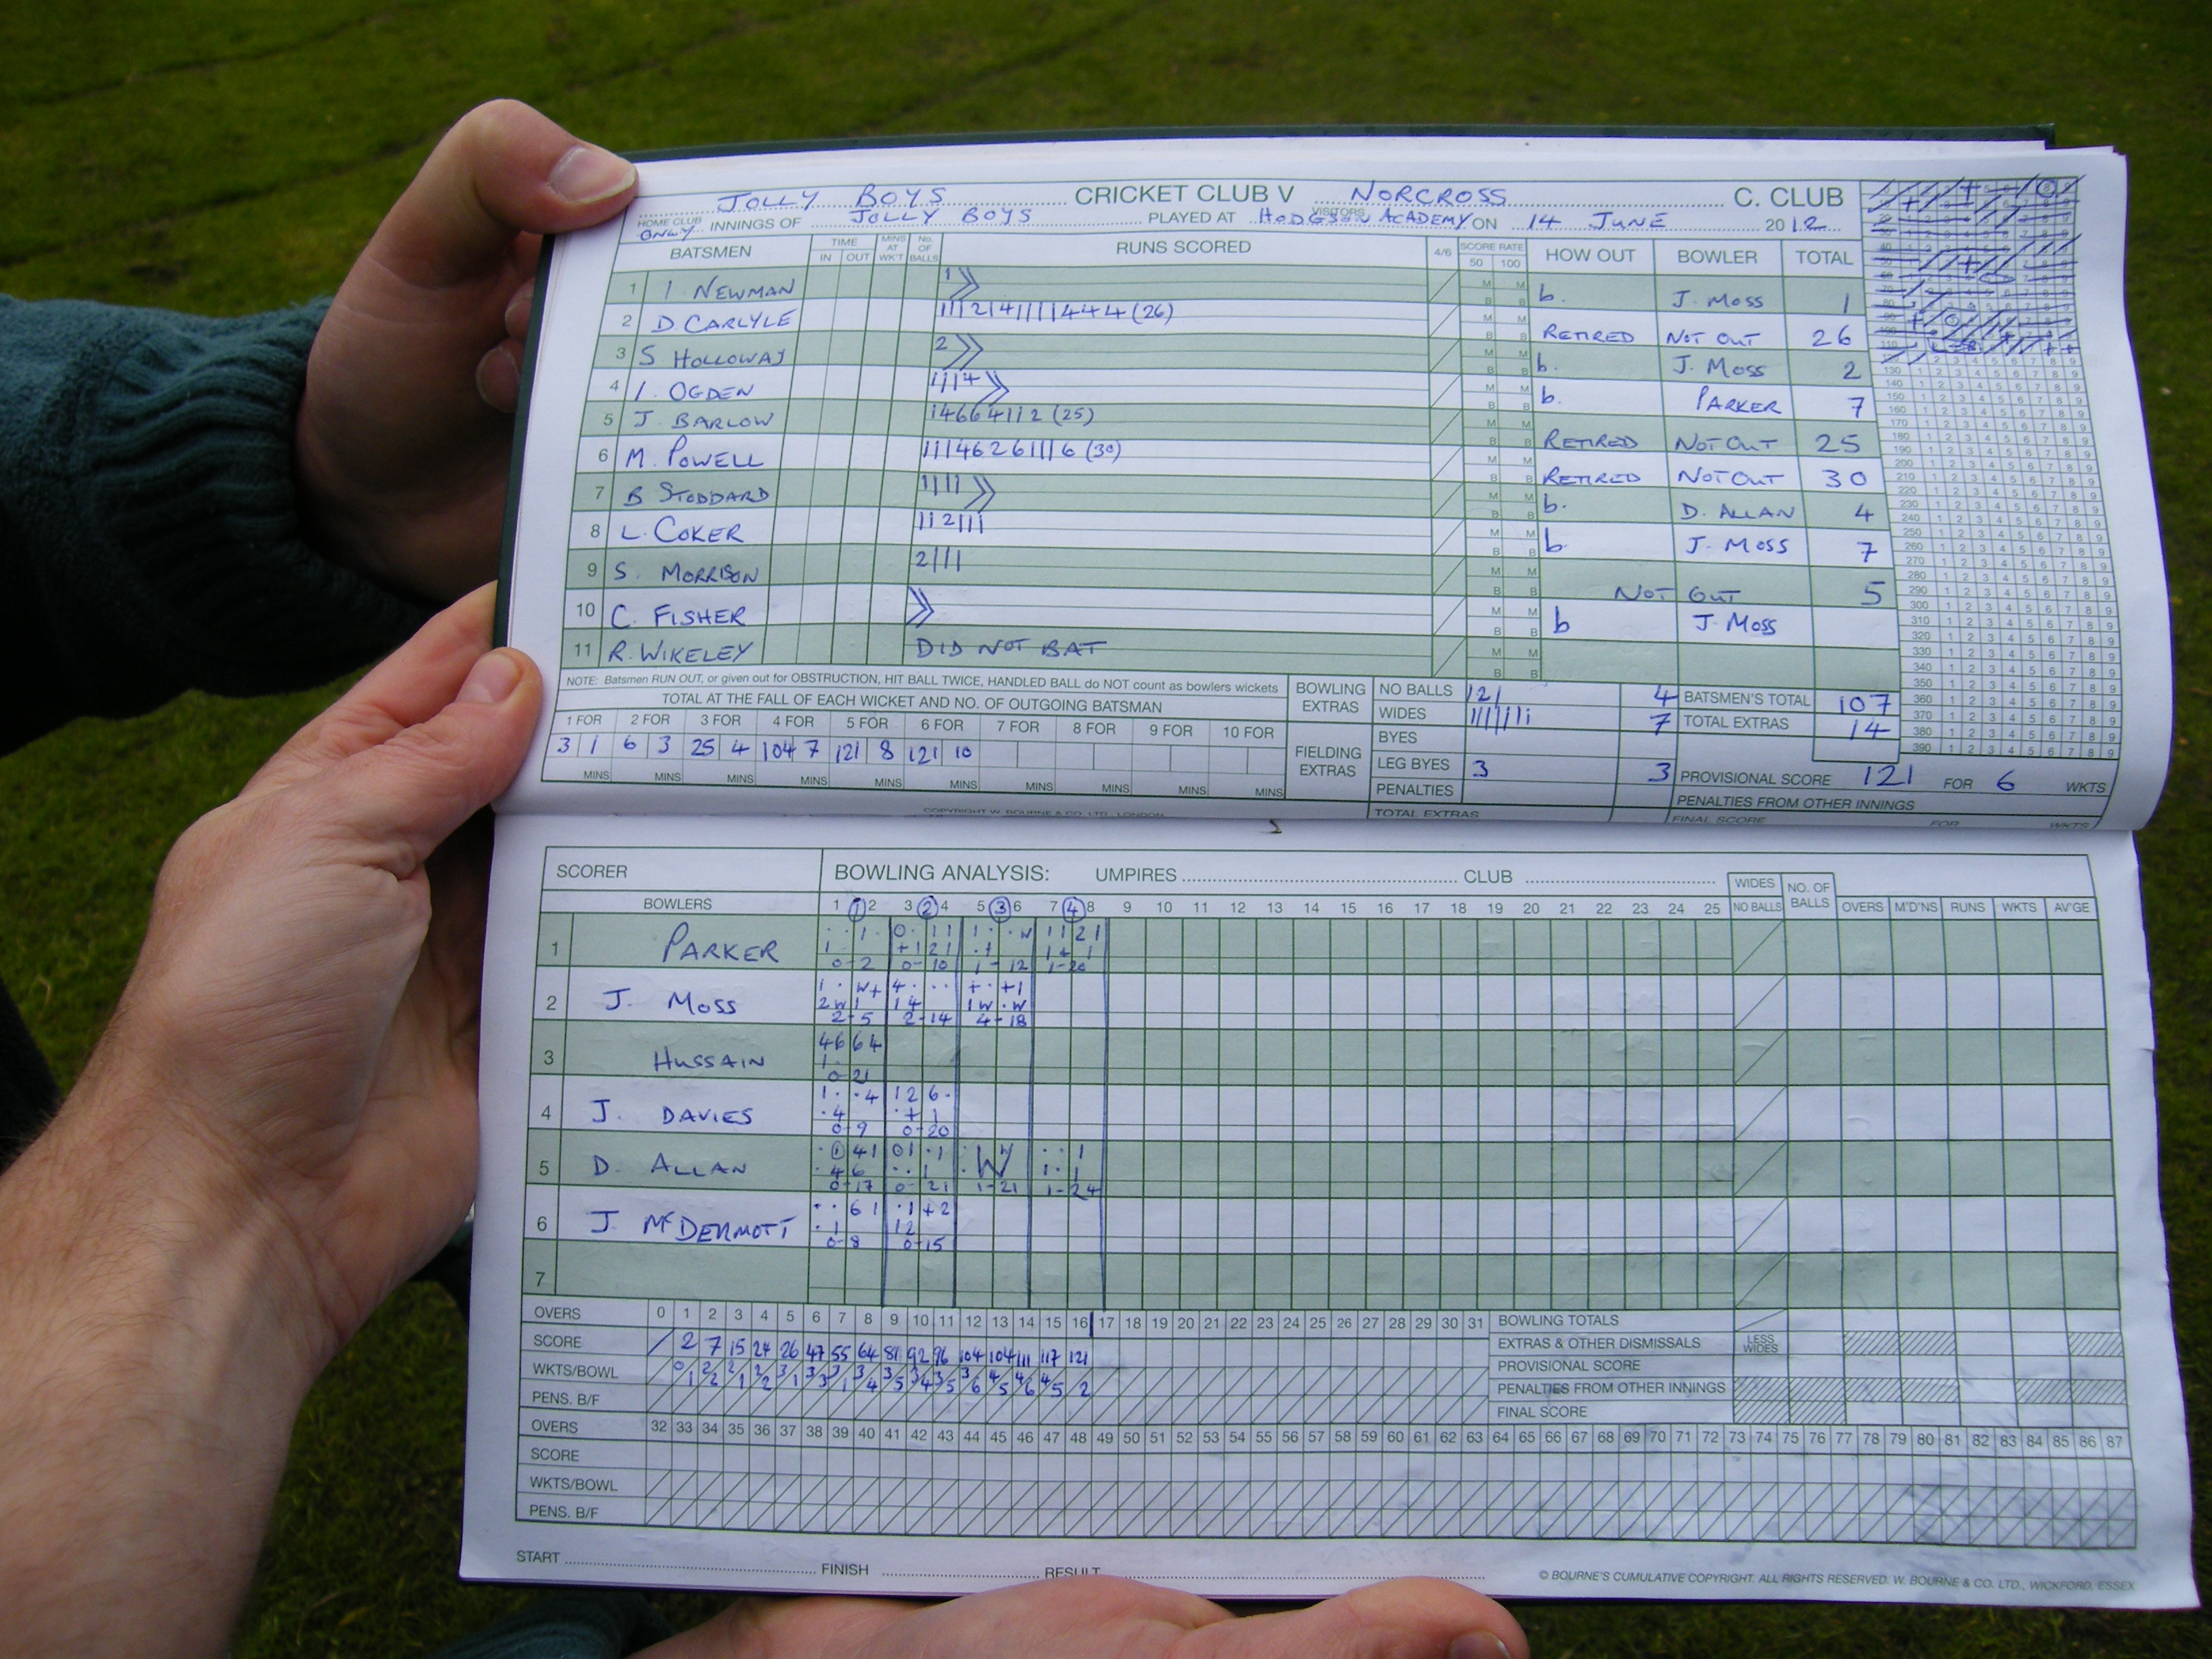 JOLLY BOYS CRICKET CLUB V NORCROSS C. CLUB
HOME CLUB VISITORS
ONLY INNINGS OF JOLLY BOYS PLAYED AT HODGSON ACADEMY ON 14 JUNE 2012
BATSMEN TIME IN OUT MINS AT WK'T No. OF BALLS RUNS SCORED 4/6 SCORE RATE 50 100 HOW OUT BOWLER TOTAL
1 I. NEWMAN 1 b. J. MOSS 1
2 D CARLYLE 1112141111444 (26) RETIRED NOT OUT 26
3 S HOLLOWAY 2 b. J. MOSS 2
4 I. OGDEN 1114 b. PARKER 7
5 J. BARLOW 14664112 (25) RETIRED NOT OUT 25
6 M. POWELL 111462611116 (30) RETIRED NOT OUT 30
7 B STODDARD 1111 b. D. ALLAN 4
8 L. COKER 112111 b J. MOSS 7
9 S. MORRISON 2111 NOT OUT 5
10 C. FISHER b J. MOSS
11 R. WIKELEY DID NOT BAT
NOTE: Batsmen RUN OUT, or given out for OBSTRUCTION, HIT BALL TWICE, HANDLED BALL do NOT count as bowlers wickets
TOTAL AT THE FALL OF EACH WICKET AND NO. OF OUTGOING BATSMAN
1 FOR 2 FOR 3 FOR 4 FOR 5 FOR 6 FOR 7 FOR 8 FOR 9 FOR 10 FOR
3 1 6 3 25 4 104 7 121 8 121 10
MINS MINS MINS MINS MINS MINS MINS MINS MINS MINS
BOWLING EXTRAS
NO BALLS 121 4
WIDES 1111111 7
FIELDING EXTRAS
BYES
LEG BYES 3 3
PENALTIES
TOTAL EXTRAS
BATSMEN'S TOTAL 107
TOTAL EXTRAS 14
PROVISIONAL SCORE 121 FOR 6 WKTS
PENALTIES FROM OTHER INNINGS
FINAL SCORE FOR WKTS
COPYRIGHT W. BOURNE & CO. LTD., LONDON
SCORER BOWLING ANALYSIS: UMPIRES CLUB
BOWLERS 1 ① 2 3 ② 4 5 ③ 6 7 ④ 8 9 10 11 12 13 14 15 16 17 18 19 20 21 22 23 24 25 WIDES NO BALLS NO. OF BALLS OVERS M'D'NS RUNS WKTS AV'GE
1 PARKER 0-2 0-10 1-12 1-20
2 J. MOSS 2-5 2-14 4-18
3 HUSSAIN 4664 1 0-21
4 J. DAVIES 0-9 0-20
5 D. ALLAN 0-17 0-21 1-21 1-24
6 J. McDERMOTT 0-8 0-15
7
OVERS 0 1 2 3 4 5 6 7 8 9 10 11 12 13 14 15 16 17 18 19 20 21 22 23 24 25 26 27 28 29 30 31 BOWLING TOTALS
SCORE / 2 7 15 24 26 47 55 64 81 92 96 104 104 111 117 121 EXTRAS & OTHER DISMISSALS LESS WIDES
WKTS/BOWL 0/1 2/2 2/1 2/2 3/1 3/3 3/1 3/4 3/5 3/4 3/5 3/6 4/5 4/6 4/5 2 PROVISIONAL SCORE
PENS. B/F PENALTIES FROM OTHER INNINGS
FINAL SCORE
OVERS 32 33 34 35 36 37 38 39 40 41 42 43 44 45 46 47 48 49 50 51 52 53 54 55 56 57 58 59 60 61 62 63 64 65 66 67 68 69 70 71 72 73 74 75 76 77 78 79 80 81 82 83 84 85 86 87
SCORE
WKTS/BOWL
PENS. B/F
START FINISH RESULT
© BOURNE'S CUMULATIVE COPYRIGHT. ALL RIGHTS RESERVED. W. BOURNE & CO. LTD., WICKFORD, ESSEX